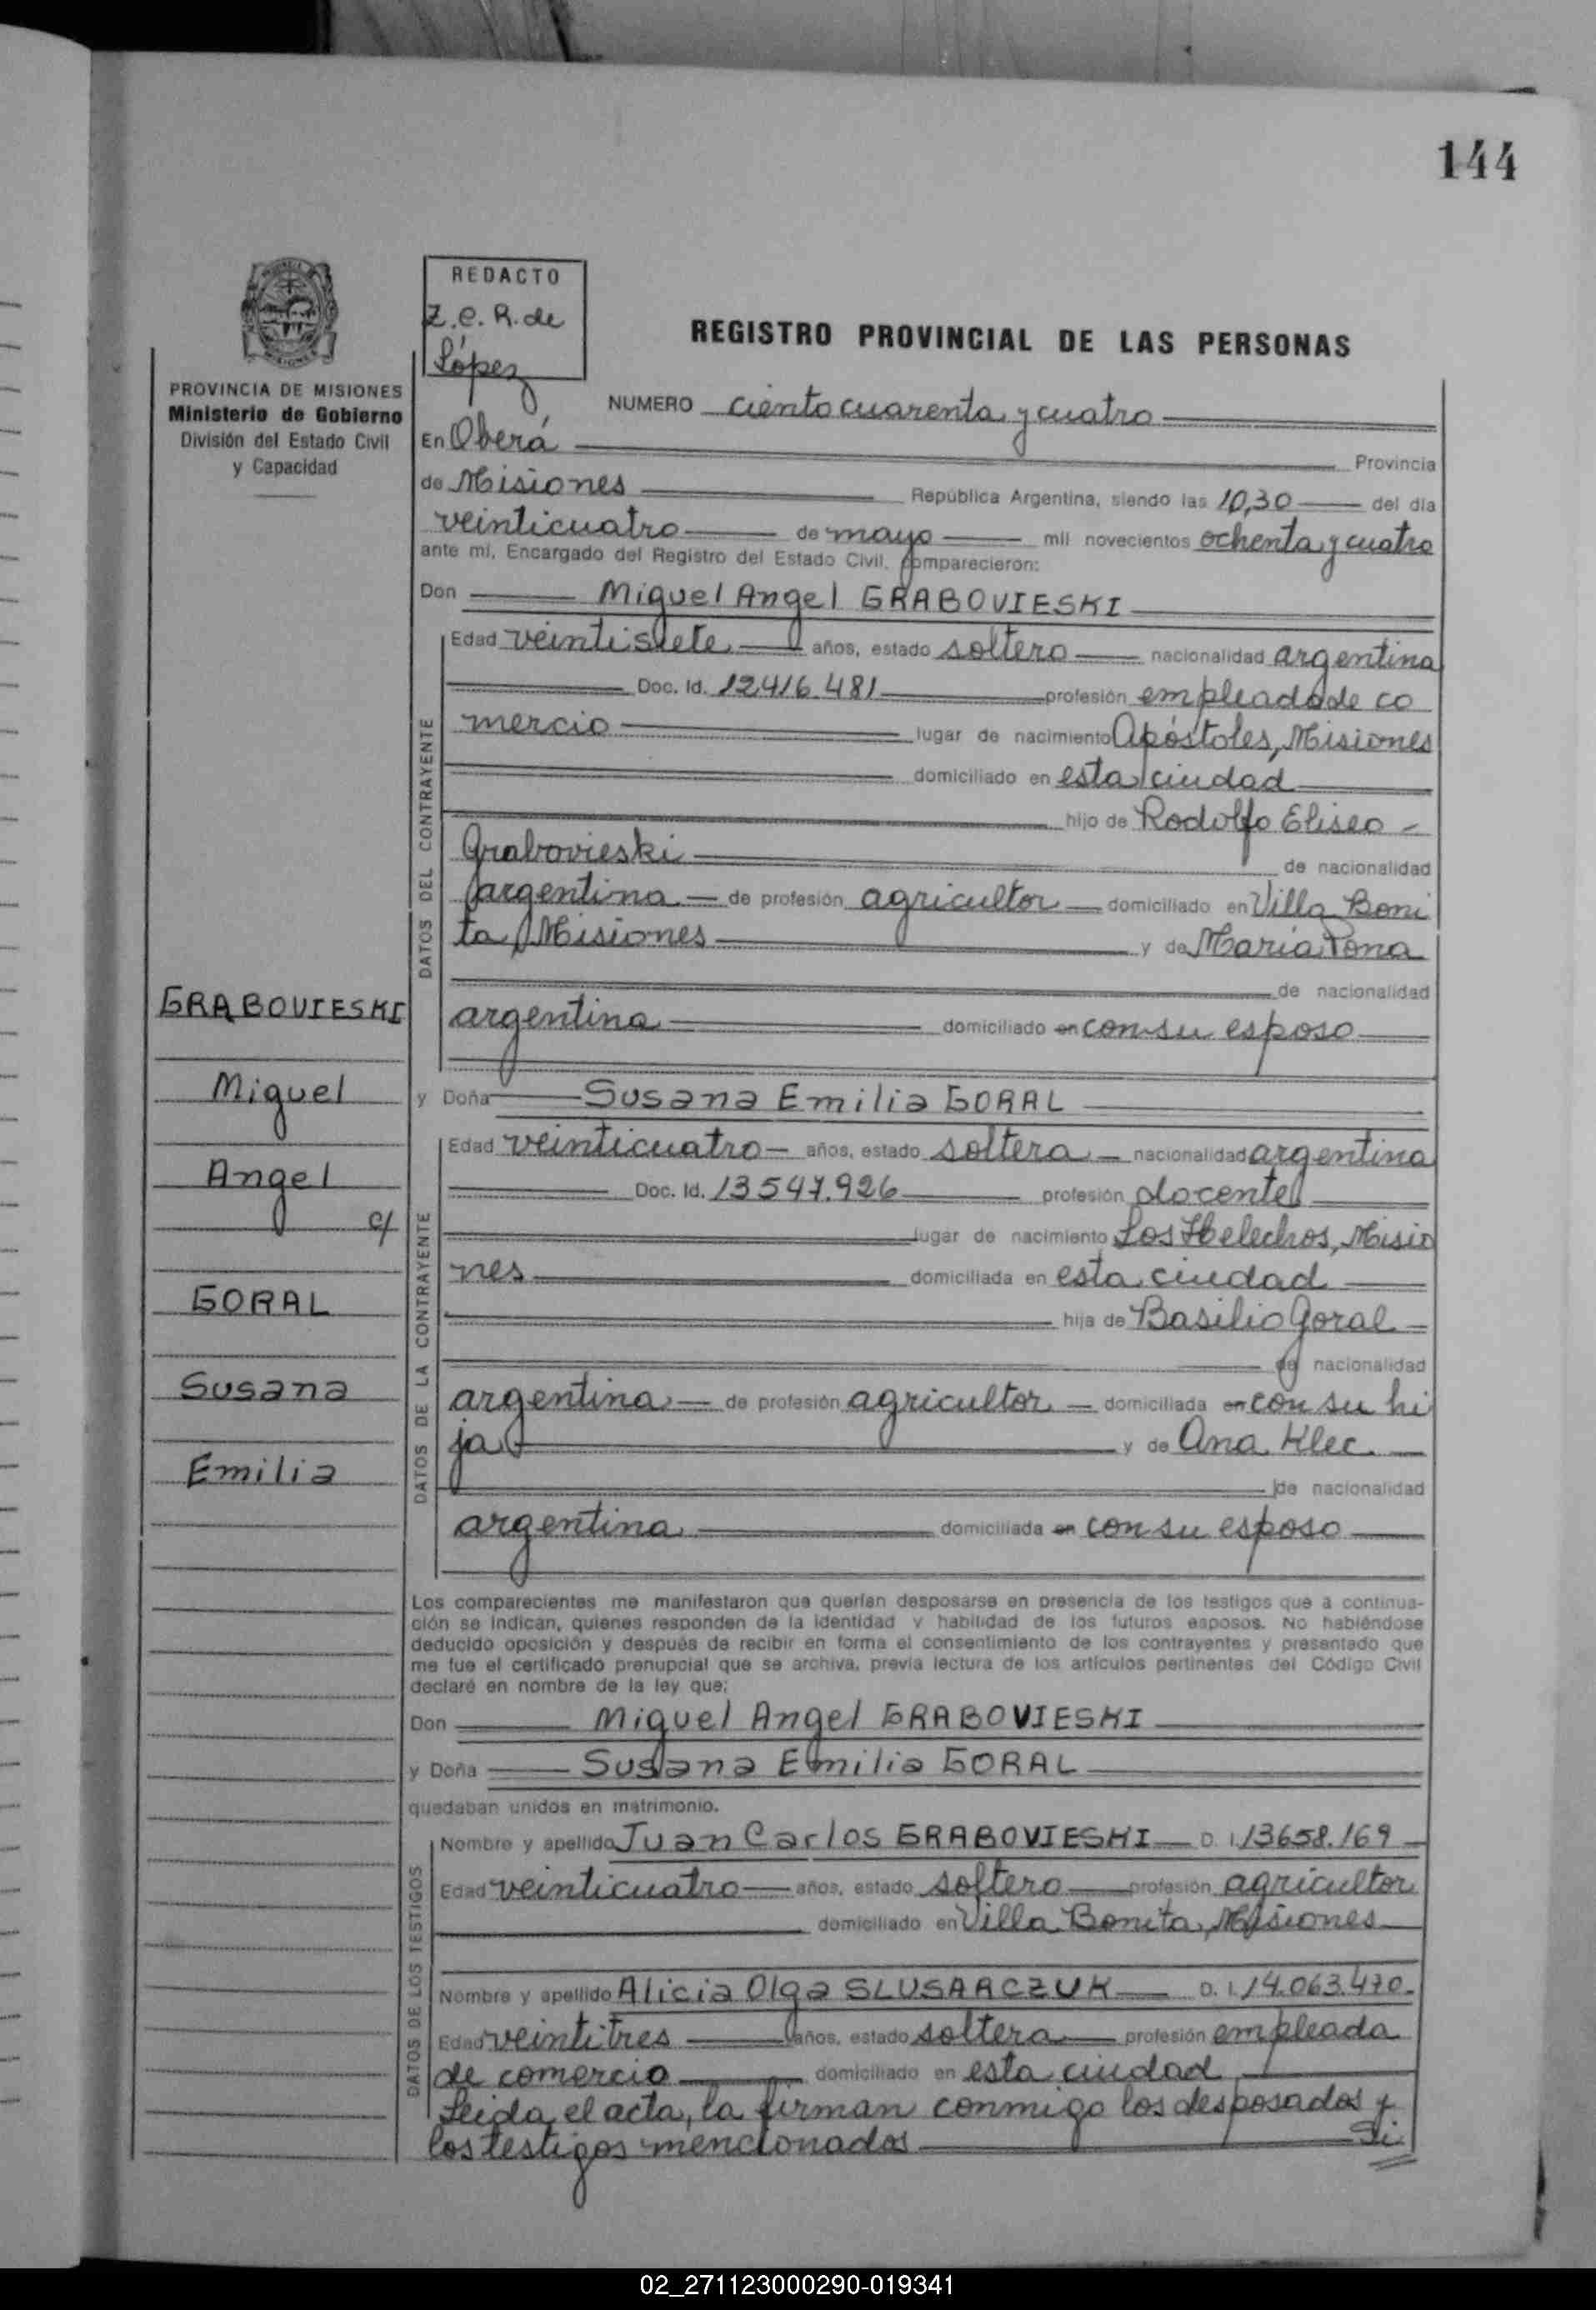 144
REDACTO
Z.C.R. de
López
REGISTRO PROVINCIAL DE LAS PERSONAS
PROVINCIA DE MISIONES
Ministerio de Gobierno
División del Estado Civil
y Capacidad
NUMERO ciento cuarenta y cuatro
En Oberá Provincia
de Misiones República Argentina, siendo las 10,30 del día
veinticuatro de mayo mil novecientos ochenta y cuatro
ante mí, Encargado del Registro del Estado Civil, comparecieron:
Don Miguel Angel GRABOVIESKI
Edad veintisiete años, estado soltero nacionalidad argentina
Doc. Id. 12.416.481 profesión empleado de co
mercio lugar de nacimiento Apóstoles, Misiones
domiciliado en esta ciudad
hijo de Rodolfo Eliseo -
Grabovieski de nacionalidad
argentina de profesión agricultor domiciliado en Villa Boni
ta, Misiones y de María Pona
de nacionalidad
argentina domiciliado en con su esposo
DATOS DEL CONTRAYENTE
GRABOVIESKI
Miguel
Angel
c/
GORAL
Susana
Emilia
y Doña Susana Emilia GORAL
Edad veinticuatro años, estado soltera nacionalidad argentina
Doc. Id. 13547.926 profesión docente
lugar de nacimiento Los Helechos, Misio
nes domiciliada en esta ciudad
hija de Basilio Goral
de nacionalidad
argentina de profesión agricultor domiciliada en con su hi
ja y de Ana Klec
de nacionalidad
argentina domiciliada en con su esposo
DATOS DE LA CONTRAYENTE
Los comparecientes me manifestaron que querían desposarse en presencia de los testigos que a continua-
ción se indican, quienes responden de la identidad y habilidad de los futuros esposos. No habiéndose
deducido oposición y después de recibir en forma el consentimiento de los contrayentes y presentado que
me fue el certificado prenupcial que se archiva, previa lectura de los artículos pertinentes del Código Civil
declaré en nombre de la ley que:
Don Miguel Angel GRABOVIESKI
y Doña Susana Emilia GORAL
quedaban unidos en matrimonio.
Nombre y apellido Juan Carlos GRABOVIESKI D. I. 13658.169
Edad veinticuatro años, estado soltero profesión agricultor
domiciliado en Villa Bonita, Misiones
Nombre y apellido Alicia Olga SLUSARCZUK D. I. 14.063.470.
Edad veintitres años, estado soltera profesión empleada
de comercio domiciliado en esta ciudad
DATOS DE LOS TESTIGOS
Leida el acta, la firman conmigo los desposados y
los testigos mencionados
02_271123000290-019341